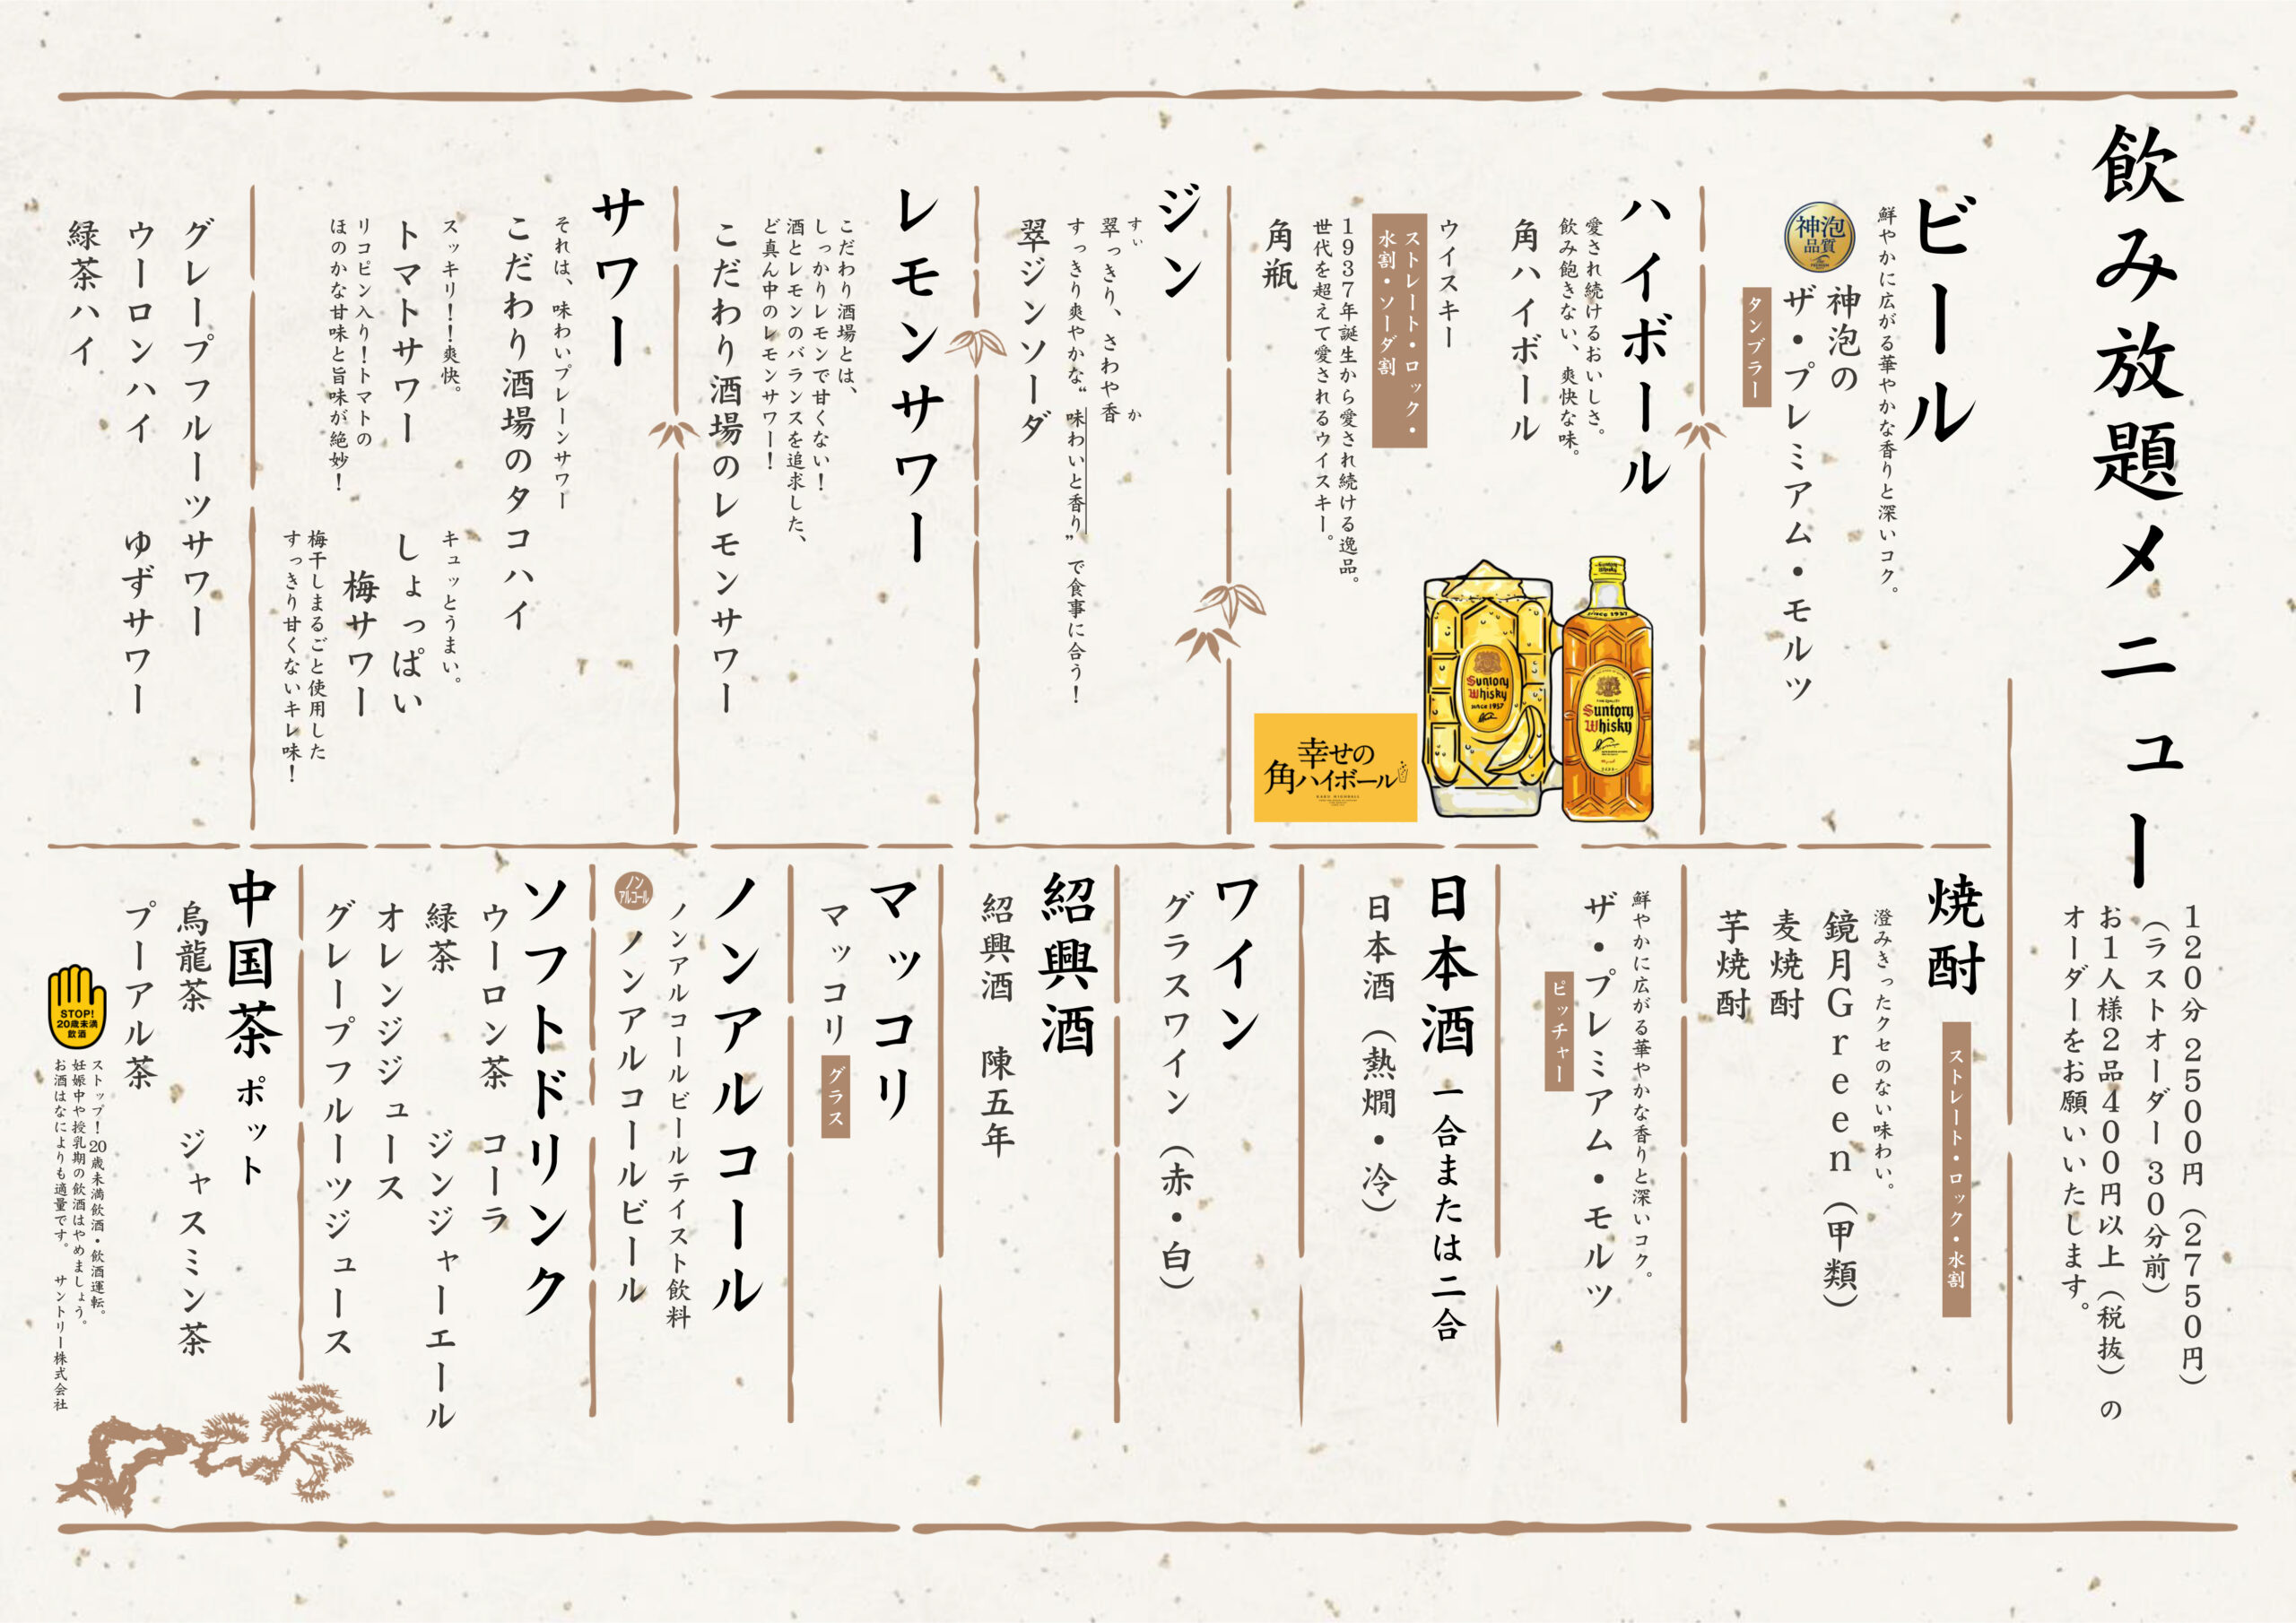 飲み放題メニュー
120分 2500円（2750円）
（ラストオーダー 30分前）
お1人様2品400円以上（税抜）の
オーダーをお願いいたします。
ビール
鮮やかに広がる華やかな香りと深いコク。
神泡
品質
神泡の
ザ・プレミアム・モルツ
タンブラー
ハイボール
愛され続けるおいしさ。
飲み飽きない、爽快な味。
角ハイボール
ウイスキー
ストレート・ロック・
水割・ソーダ割
1937年誕生から愛され続ける逸品。
世代を超えて愛されるウイスキー。
角瓶
Suntory
Whisky
since 1937
Suntory
Whisky
since 1937
幸せの
角ハイボール
ジン
すぃ
か
翠っきり、さわや香
すっきり爽やかな“味わいと香り”で食事に合う！
翠ジンソーダ
レモンサワー
こだわり酒場とは、
しっかりレモンで甘くない！
酒とレモンのバランスを追求した、
ど真ん中のレモンサワー！
こだわり酒場のレモンサワー
サワー
それは、味わいプレーンサワー
こだわり酒場のタコハイ
スッキリ！！爽快。
トマトサワー
リコピン入り！トマトの
ほのかな甘味と旨味が絶妙！
キュッとうまい。
しょっぱい
梅サワー
梅干しまるごと使用した
すっきり甘くないキレ味！
グレープフルーツサワー
ウーロンハイ　ゆずサワー
緑茶ハイ
焼酎
ストレート・ロック・水割
澄みきったクセのない味わい。
鏡月Green（甲類）
麦焼酎
芋焼酎
鮮やかに広がる華やかな香りと深いコク。
ザ・プレミアム・モルツ
ピッチャー
日本酒 一合または二合
日本酒（熱燗・冷）
ワイン
グラスワイン（赤・白）
紹興酒
紹興酒　陳五年
マッコリ
マッコリ
グラス
ノンアルコール
ノンアルコールビールテイスト飲料
ノン
アルコール
ノンアルコールビール
ソフトドリンク
ウーロン茶　コーラ
緑茶　ジンジャーエール
オレンジジュース
グレープフルーツジュース
中国茶 ポット
烏龍茶　ジャスミン茶
プーアル茶
STOP!
20歳未満
飲酒
ストップ！20歳未満飲酒・飲酒運転。
妊娠中や授乳期の飲酒はやめましょう。
お酒はなによりも適量です。　サントリー株式会社